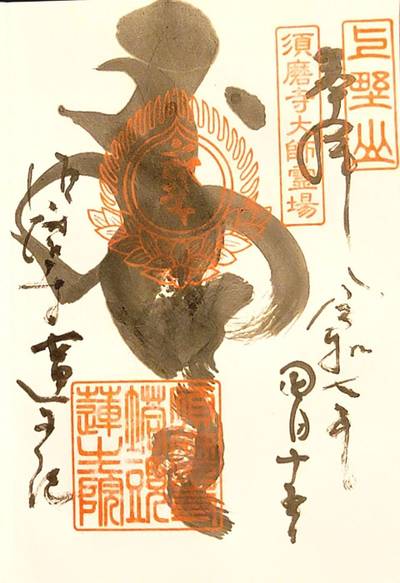 上野山
奉拝
須磨寺大師霊場
令和七年
四月十
須磨寺蓮生院
須磨寺
塔頭
蓮生院